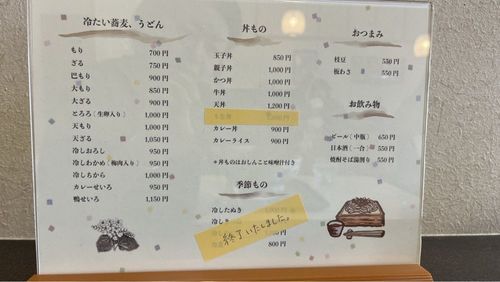 冷たい蕎麦、うどん
もり 700円
ざる 750円
巴もり 900円
大もり 850円
大ざる 900円
とろろ（生卵入り） 1,000円
天もり 1,000円
天ざる 1,050円
冷しおろし 950円
冷しわかめ（梅肉入り） 950円
冷しちから 1,000円
カレーせいろ 950円
鴨せいろ 1,150円
丼もの
玉子丼 850円
親子丼 1,000円
かつ丼 1,000円
牛丼 1,000円
天丼 1,200円
カレー丼 900円
カレーライス 900円
*丼ものはおしんこと味噌汁付き
季節もの
冷したぬき
冷し
終了いたしました。
800円
おつまみ
枝豆 550円
板わさ 550円
お飲み物
ビール（中瓶） 650円
日本酒（一合） 550円
焼酎そば湯割り 550円